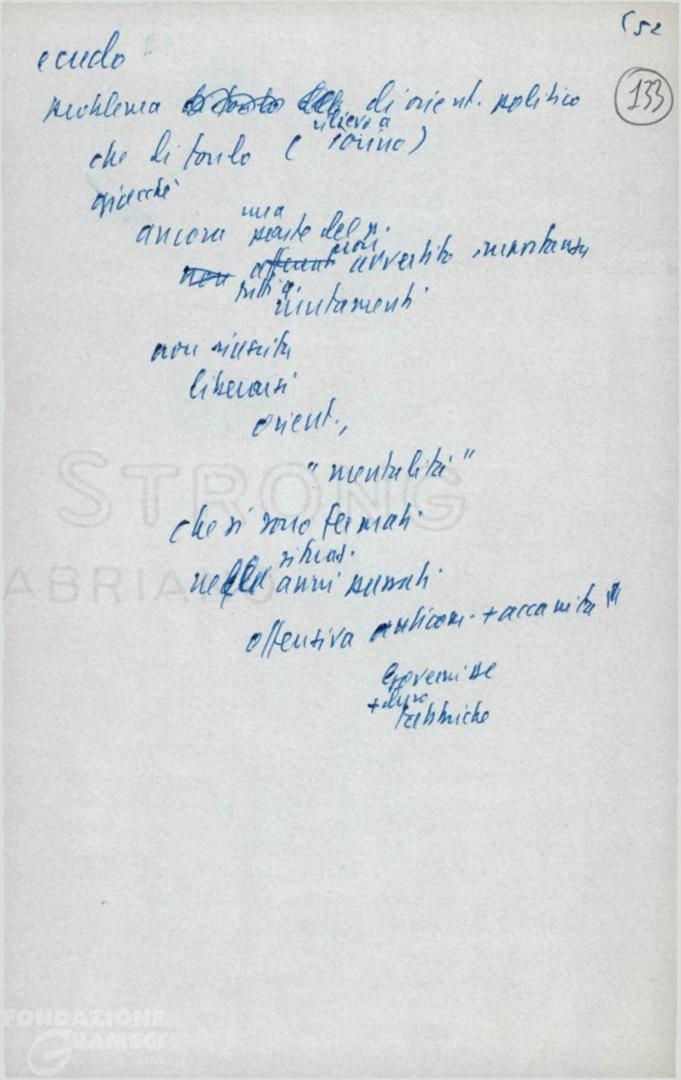 (52
133
e credo
problema di orient. politico
che di fondo ( rilievo a Torino )
giacché
ancora una parte del p.
non avvertito importanza
tutti i mutamenti
non riuscita
liberarsi
orient.,
"mentalità"
che si sono fermati
situaz.
negli anni passati
offensiva anticom. + accanita
Governi DC
+ dura
fabbriche
STRONG
FABRIANO
FONDAZIONE
GRAMSCI